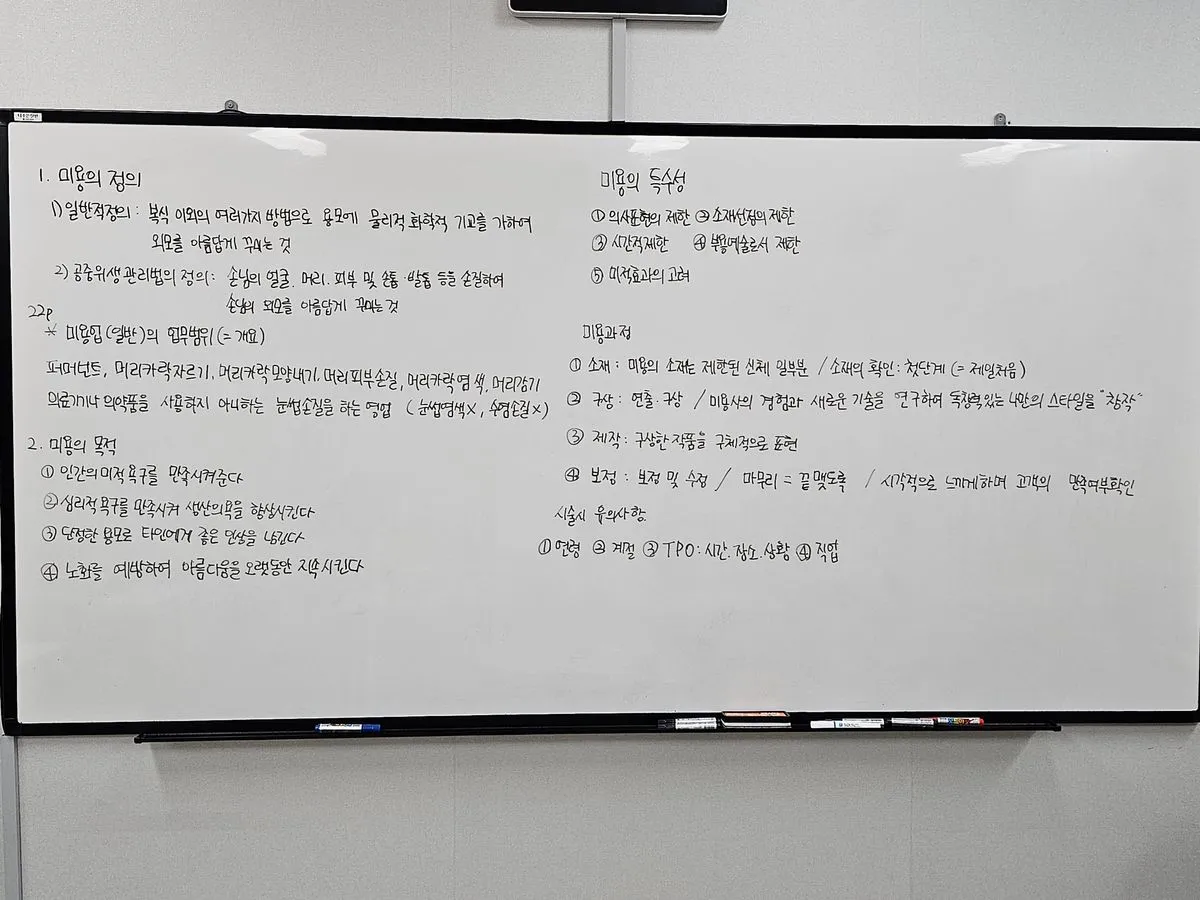 1. 미용의 정의
1) 일반적정의 : 복식 이외의 여러가지 방법으로 용모에 물리적 화학적 기교를 가하여
외모를 아름답게 꾸미는 것
2) 공중위생관리법의 정의 : 손님의 얼굴. 머리. 피부 및 손톱·발톱 등을 손질하여
손님의 외모를 아름답게 꾸미는 것
22p
* 미용업(일반)의 업무범위(= 개요)
퍼머넌트, 머리카락자르기, 머리카락모양내기, 머리피부손질, 머리카락염색, 머리감기
의료기기나 의약품을 사용하지 아니하는 눈썹손질을 하는 영업 (눈썹염색X, 수염손질X)
2. 미용의 목적
① 인간의 미적욕구를 만족시켜준다
② 심리적욕구를 만족시켜 생산의욕을 향상시킨다
③ 단정한 용모로 타인에게 좋은 인상을 남긴다
④ 노화를 예방하여 아름다움을 오랫동안 지속시킨다
미용의 특수성
① 의사표현의 제한 ② 소재선정의 제한
③ 시간적제한 ④ 부용예술로서 제한
⑤ 미적효과의 고려
미용과정
① 소재 : 미용의 소재는 제한된 신체 일부분 / 소재의 확인 : 첫단계 (= 제일처음)
② 구상 : 연출·구상 / 미용사의 경험과 새로운 기술을 연구하여 독창력있는 나만의 스타일을 "창작"
③ 제작 : 구상한 작품을 구체적으로 표현
④ 보정 : 보정 및 수정 / 마무리 = 끝맺도록 / 시각적으로 느끼게하며 고객의 만족여부확인
시술시 유의사항.
① 연령 ② 계절 ③ TPO : 시간. 장소. 상황 ④ 직업